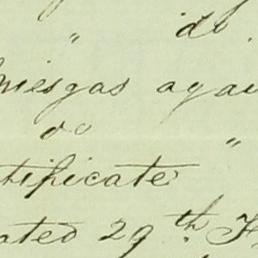 " do.
niesgas agai
do "
tificate
ated 29th F